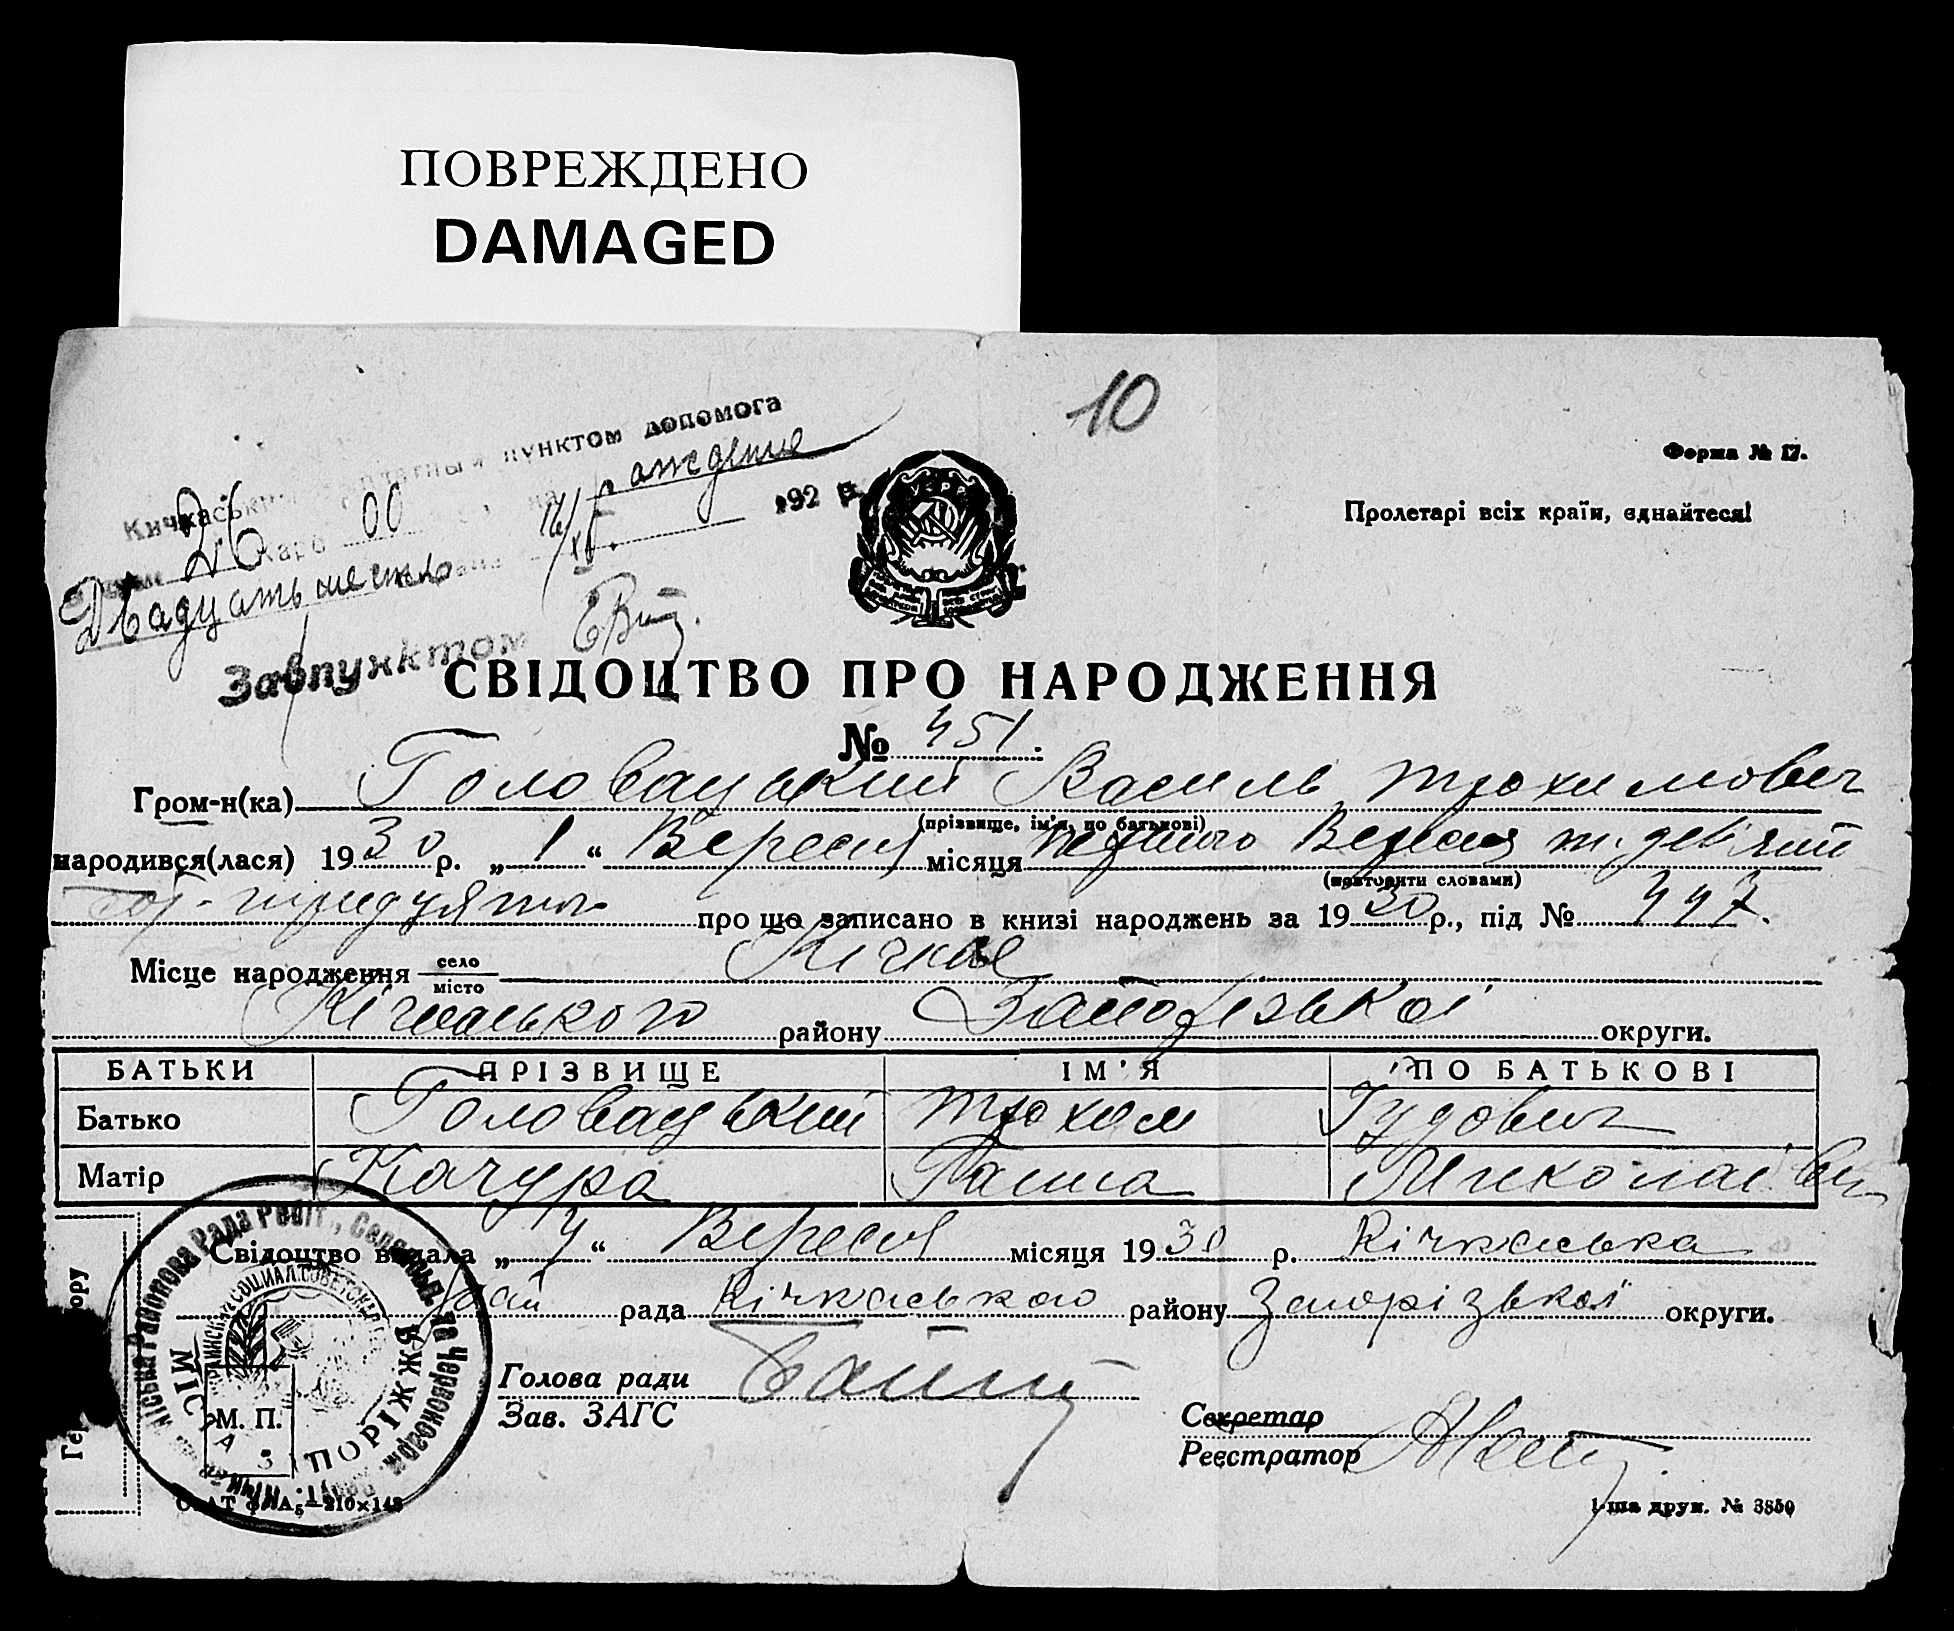 ПОВРЕЖДЕНО
DAMAGED
10
Форма № 17.
Пролетарі всіх країн, єднайтеся!
Кичкаський пунктом допомога
26 карб 00 на рождение
192 р.
Двадцать шесть
Завпунктом
СВІДОЦТВО ПРО НАРОДЖЕННЯ
№ 451.
Гром-н(ка) Головацький Василь Трохимович
(прізвище, ім'я, по батькові)
народився(лася) 1930 р. „1“ Вересня місяця першого Вересня т. девʼятий
(повторити словами)
про що записано в книзі народжень за 1930 р., під № 447.
Місце народження село місто Кічкас
Кічкаського району Запорізької округи.
БАТЬКИ ПРІЗВИЩЕ ІМ'Я ПО БАТЬКОВІ
Батько Головацький Трохим
Матір Качура Ганна Миколаївн
Свідоцтво видала „4“ Вересня місяця 1930 р. Кічкаська
рай рада Кічкаського району Запорізької округи.
Голова ради
Зав. ЗАГС
Секретар
Реєстратор
М. П.
МІС ЗАПОРІЖЖЯ
210×148
1-ша друк. № 3850